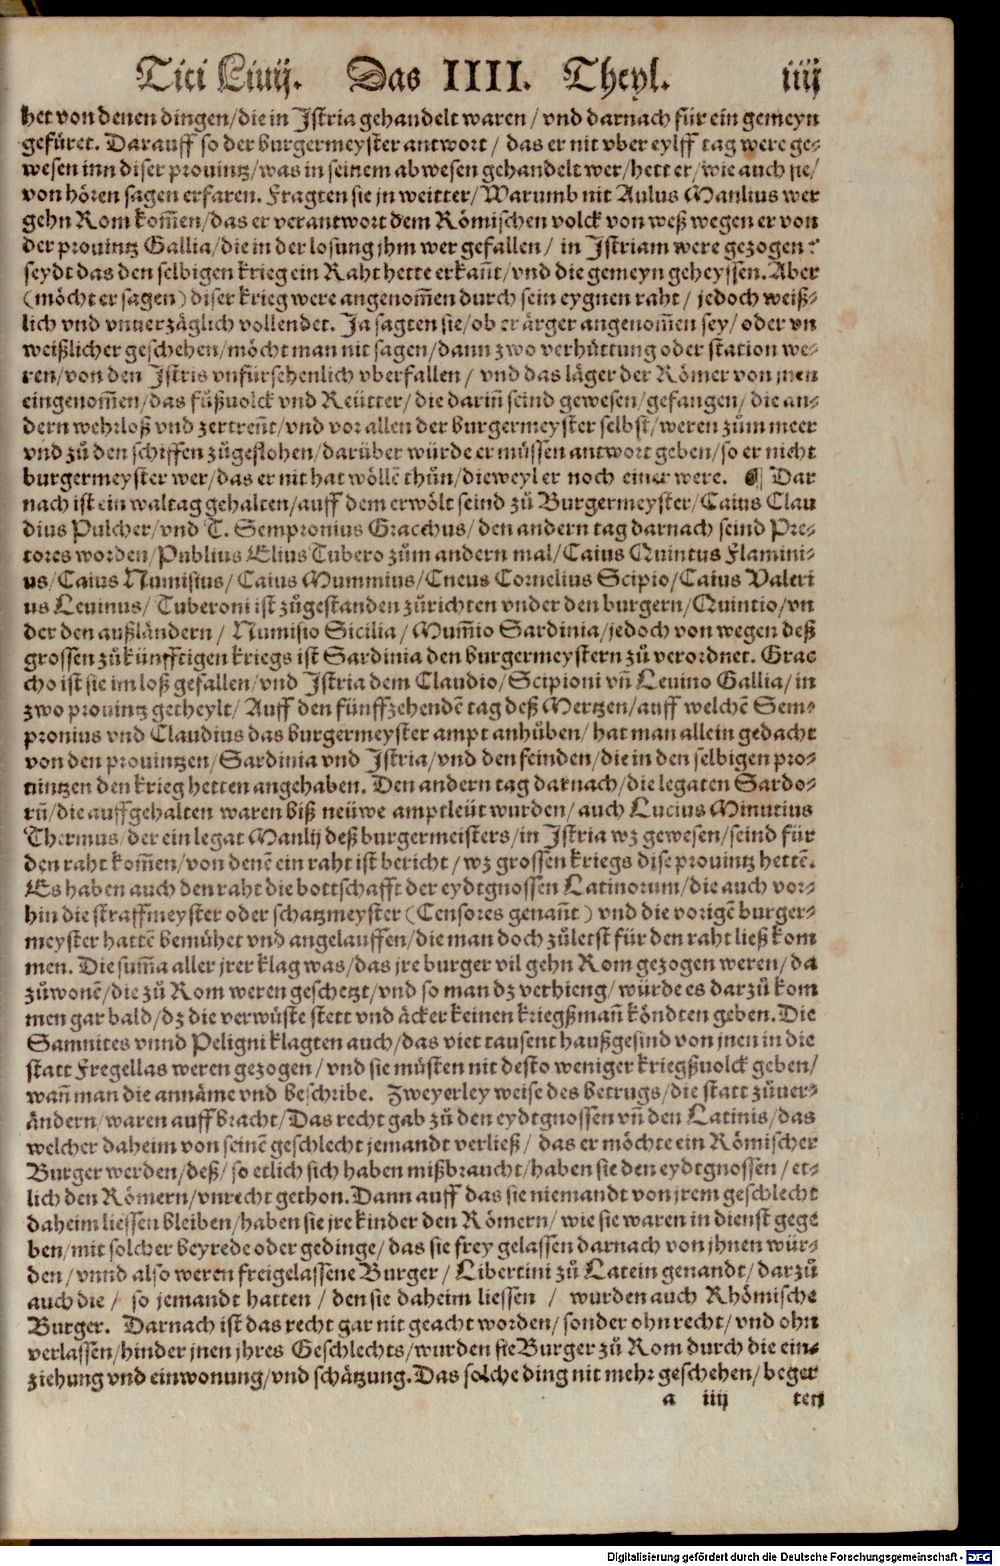 Titi Liuij. Das IIII. Theyl. iiij
het von denen dingen/die in Jstria gehandelt waren/ vnd darnach für ein gemeyn
gefüret. Darauff so der burgermeyster antwort/ das er nit vber eylff tag were ge-
wesen inn diser prouintz/was in seinem abwesen gehandelt wer/hett er/wie auch sie/
von hören sagen erfaren. Fragten sie jn weitter/Warumb nit Aulus Manlius wer
gehn Rom kom̃en/das er verantwort dem Römischen volck von weß wegen er von
der prouintz Gallia/die in der losung jhm wer gefallen/ in Jstriam were gezogen?
seydt das den selbigen krieg ein Raht hette erkañt/vnd die gemeyn geheyssen. Aber
(möcht er sagen) diser krieg were angenom̃en durch sein eygnen raht/ jedoch weiß-
lich vnd vnuerzäglich vollendet. Ja sagten sie/ob er ärger angenom̃en sey/ oder vn
weißlicher geschehen/möcht man nit sagen/dann zwo verhüttung oder station we-
ren/von den Jstris vnfürsehenlich vberfallen/ vnd das läger der Römer von jnen
eingenom̃en/das fůßuolck vnd Reütter/die dariñ seind gewesen/gefangen/die an-
dern wehrloß vnd zertreñt/vnd vor allen der burgermeyster selbst/weren zům meer
vnd zů den schiffen zůgeflohen/darüber würde er müssen antwort geben/so er nicht
burgermeyster wer/das er nit hat wöllẽ thůn/dieweyl er noch einer were. ¶ Dar
nach ist ein waltag gehalten/auff dem erwölt seind zů Burgermeyster/Caius Clau
dius Pulcher/vnd T. Sempronius Gracchus/den andern tag darnach seind Pre-
tores worden/Publius Elius Tubero zům andern mal/Caius Quintus Flamini-
us/Caius Numisius/Caius Mummius/Cneus Cornelius Scipio/Caius Valeri
us Leuinus/Tuberoni ist zůgestanden zůrichten vnder den burgern/Quintio/vn
der den außländern/ Numisio Sicilia/Mum̃io Sardinia/jedoch von wegen deß
grossen zůkünfftigen kriegs ist Sardinia den burgermeystern zů verordnet. Grac
cho ist sie im loß gefallen/vnd Jstria dem Claudio/Scipioni vñ Leuino Gallia/in
zwo prouintz getheylt/Auff den fünffzehendẽ tag deß Mertzen/auff welchẽ Sem-
pronius vnd Claudius das burgermeyster ampt anhůben/hat man allein gedacht
von den prouintzen/Sardinia vnd Jstria/vnd den feinden/die in den selbigen pro-
uintzen den krieg hetten angehaben. Den andern tag darnach/die legaten Sardo-
rũ/die auffgehalten waren biß neüwe amptleüt wurden/auch Lucius Minutius
Thermus/der ein legat Manlij deß burgermeisters/in Jstria wz gewesen/seind für
den raht kom̃en/von denẽ ein raht ist bericht/wz grossen kriegs dise prouintz hettẽ.
Es haben auch den raht die bottschafft der eydtgnossen Latinorum/die auch vor-
hin die straffmeyster oder schatzmeyster (Censores genañt) vnd die vorigẽ burger-
meyster hattẽ bemühet vnd angelauffen/die man doch zůletst für den raht ließ kom
men. Die sum̃a aller jrer klag was/das jre burger vil gehn Rom gezogen weren/da
zůwonẽ/die zů Rom weren geschetzt/vnd so man dz verhieng/würde es darzů kom
men gar bald/dz die verwüste stett vnd äcker keinen kriegßmañ köndten geben. Die
Samnites vnnd Peligni klagten auch/das viet tausent haußgesind von jnen in die
statt Fregellas weren gezogen/vnd sie müsten nit desto weniger kriegßuolck geben/
wañ man die annäme vnd beschribe. Zweyerley weise des betrugs/die statt zůuer-
ändern/waren auffbracht/Das recht gab zů den eydtgnossen vñ den Latinis/das
welcher daheim von seinẽ geschlecht jemandt verließ/ das er möchte ein Römischer
Burger werden/deß/so etlich sich haben mißbraucht/haben sie den eydtgnossen/et-
lich den Römern/vnrecht gethon. Dann auff das sie niemandt von jrem geschlecht
daheim liessen bleiben/haben sie jre kinder den Römern/wie sie waren in dienst gege
ben/mit solcher beyrede oder gedinge/das sie frey gelassen darnach von jhnen wür-
den/vnnd also weren freigelassene Burger/Libertini zů Latein genandt/darzů
auch die/ so jemandt hatten/den sie daheim liessen / wurden auch Rhömische
Burger. Darnach ist das recht gar nit geacht worden/sonder ohn recht/vnd ohn
verlassen/hinder jnen jhres Geschlechts/wurden sie Burger zů Rom durch die ein-
ziehung vnd einwonung/vnd schätzung. Das solche ding nit mehr geschehen/beger
a iiij ten
Digitalisierung gefördert durch die Deutsche Forschungsgemeinschaft - DFG